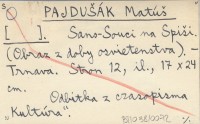 S
PAJDUŠÁK Matúš
[ ]. Sans-Souci na Spiši.
(Obraz z doby osvietenstva). -
Trnava. Stron 12, il., 17 x 24
cm.
Odbitka z czasopisma
„Kultúra".